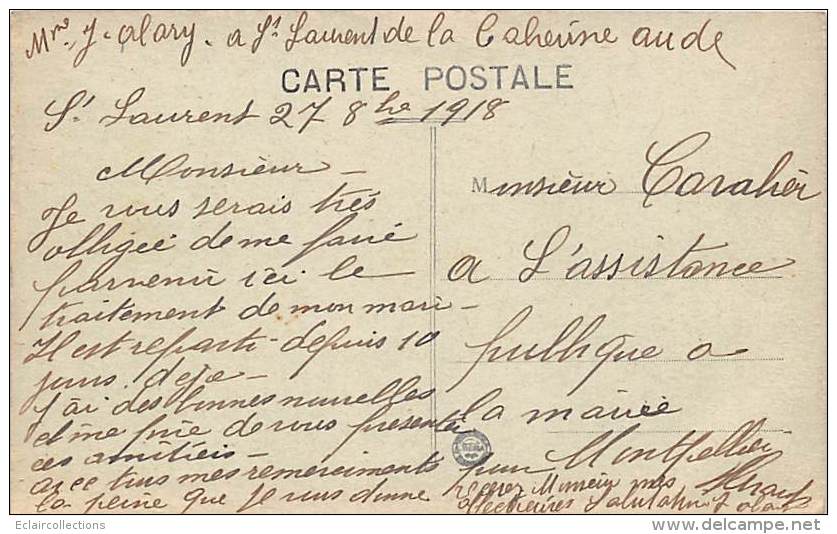 Mme J. Alary. a St Laurent de la Caherine aude
CARTE POSTALE
St Laurent 27 8bre 1918
Monsieur –
Je vous serais très
obligée de me faire
parvenir ici le
traitement de mon mari –
Il est reparti depuis 10
jours déjà –
J'ai des bonnes nouvelles
et me prie de vous présenter
ces amitiés –
avec tous mes remerciments
la peine que je vous donne
Monsieur Cavalier
a L'assistance
publique a
la mairie
Montpellier
Hérault
pour
recevez Monsieur mes
Salutations J alary
Eclaircollections
www.delcampe.net